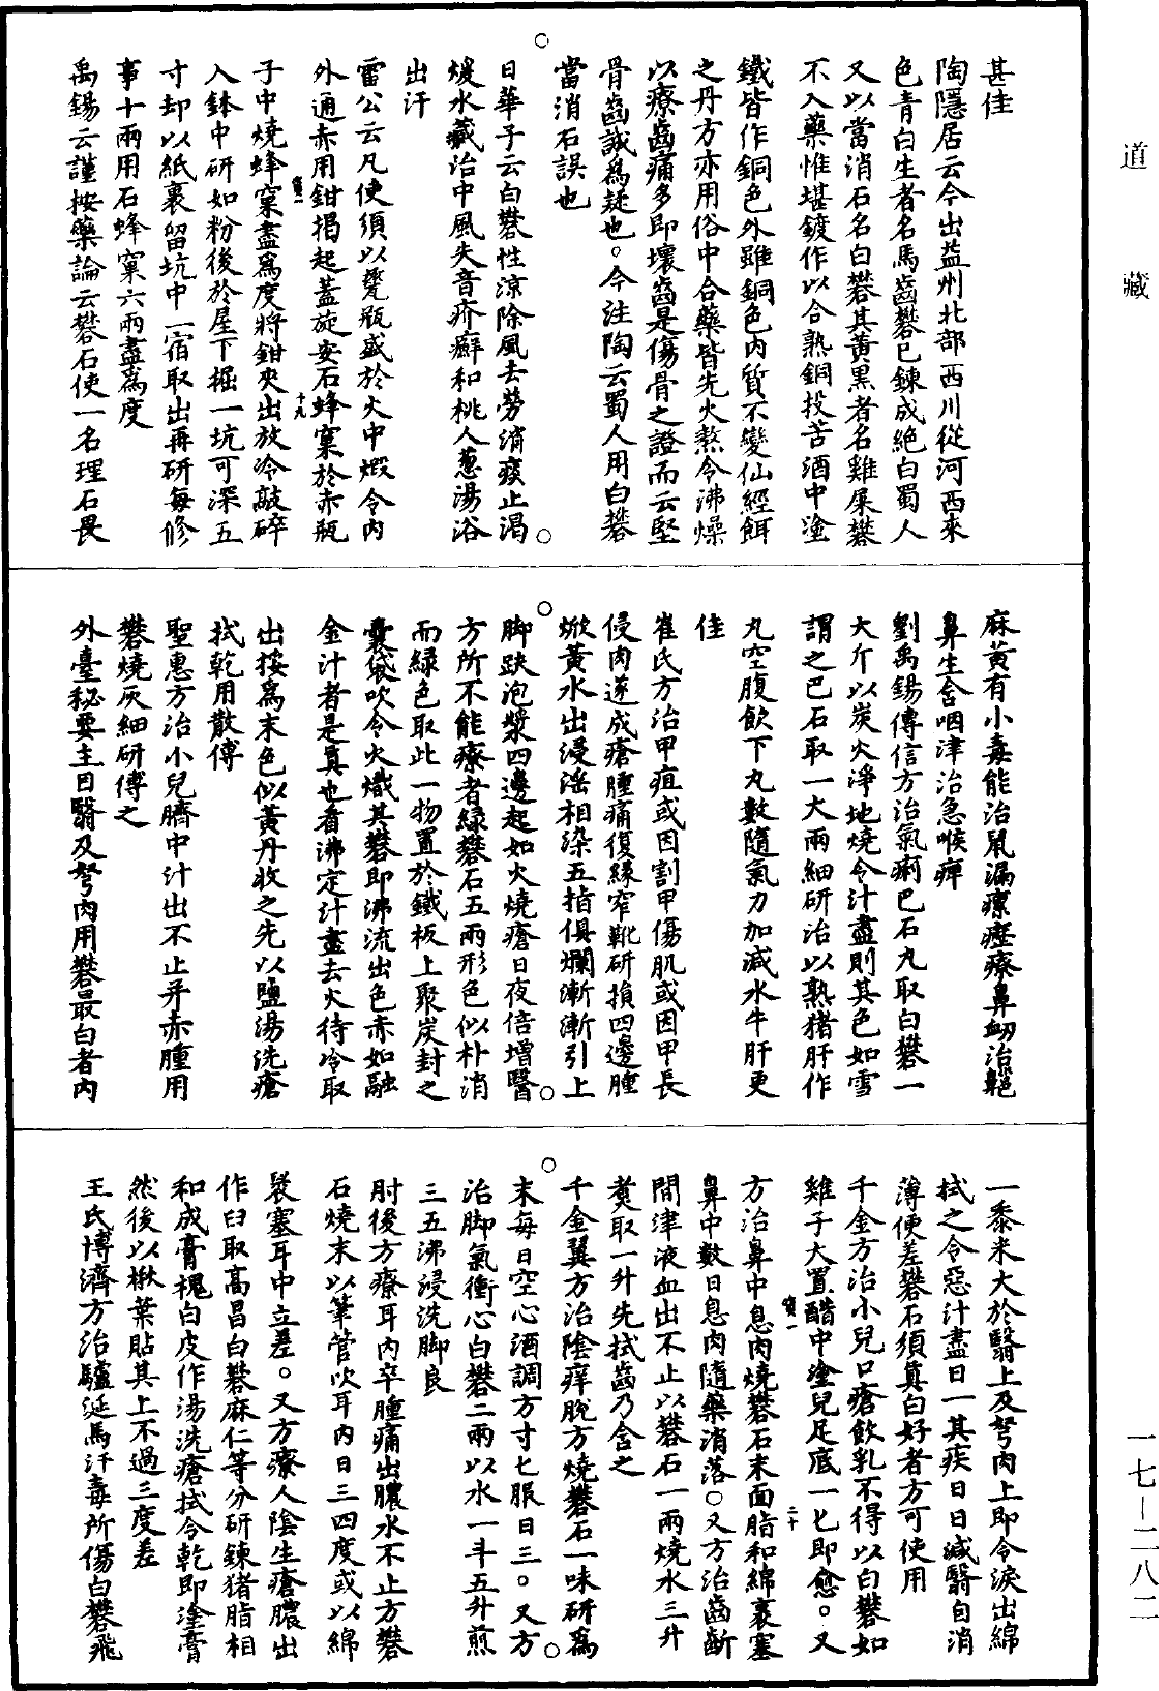 道藏
甚佳
陶隱居云今出益州北部西川從河西來
色青白生者名馬齒礬已鍊成絕白蜀人
又以當消石名白礬其黃黑者名雞屎礬
不入藥惟堪鍍作以合熟銅投苦酒中塗
鐵皆作銅色外雖銅色內質不變仙經餌
之丹方亦用俗中合藥皆先火熬令沸燥
以療齒痛多即壞齒是傷骨之證而云堅
骨齒誠為疑也○今注陶云蜀人用白礬
當消石誤也
日華子云白礬性涼除風去勞消痰止渴
煖水藏治中風失音疥癬和桃人葱湯浴
出汗
雷公云凡使須以甆瓶盛於火中煆令內
外通赤用鉗揭起蓋旋安石蜂窠於赤瓶
寶一 十九
子中燒蜂窠盡為度將鉗夾出放冷敲碎
入鉢中研如粉後於屋下掘一坑可深五
寸却以紙裹留坑中一宿取出再研每修
事十兩用石蜂窠六兩盡為度
禹錫云謹按藥論云礬石使一名理石畏
麻黃有小毒能治鼠漏瘰癧療鼻衂治齆
鼻生含咽津治急喉痺
劉禹錫傳信方治氣痢巴石丸取白礬一
大斤以炭火淨地燒令汁盡則其色如雪
謂之巴石取一大兩細研治以熟猪肝作
丸空腹飲下丸數隨氣力加減水牛肝更
佳
崔氏方治甲疽或因割甲傷肌或因甲長
侵肉遂成瘡腫痛復緣窄靴研損四邊腫
焮黃水出浸淫相染五指俱爛漸漸引上
脚趺泡漿四邊起如火燒瘡日夜倍增醫
方所不能療者綠礬石五兩形色似朴消
而綠色取此一物置於鐵板上聚炭封之
囊袋吹令火熾其礬即沸流出色赤如融
金汁者是真也看沸定汁盡去火待冷取
出挼為末色似黃丹收之先以鹽湯洗瘡
拭乾用散傅
聖惠方治小兒臍中汁出不止并赤腫用
礬燒灰細研傅之
外臺秘要主目翳及弩肉用礬最白者內
一黍米大於翳上及弩肉上即令淚出綿
拭之令惡汁盡日一其疾日日減翳自消
薄便差礬石須真白好者方可使用
千金方治小兒口瘡飲乳不得以白礬如
雞子大置醋中塗兒足底一七即愈○又
寶一 二十
方治鼻中息肉燒礬石末面脂和綿裹塞
鼻中數日息肉隨藥消落○又方治齒齗
間津液血出不止以礬石一兩燒水三升
煑取一升先拭齒乃含之
千金翼方治陰痒脫方燒礬石一味研為
末每日空心酒調方寸匕服日三○又方
治脚氣衝心白礬二兩以水一斗五升煎
三五沸浸洗脚良
肘後方療耳內卒腫痛出膿水不止方礬
石燒末以筆管吹耳內日三四度或以綿
裝塞耳中立差○又方療人陰生瘡膿出
作臼取高昌白礬麻仁等分研鍊猪脂相
和成膏槐白皮作湯洗瘡拭令乾即塗膏
然後以楸葉貼其上不過三度差
王氏博濟方治驢涎馬汗毒所傷白礬飛
一七—二八二